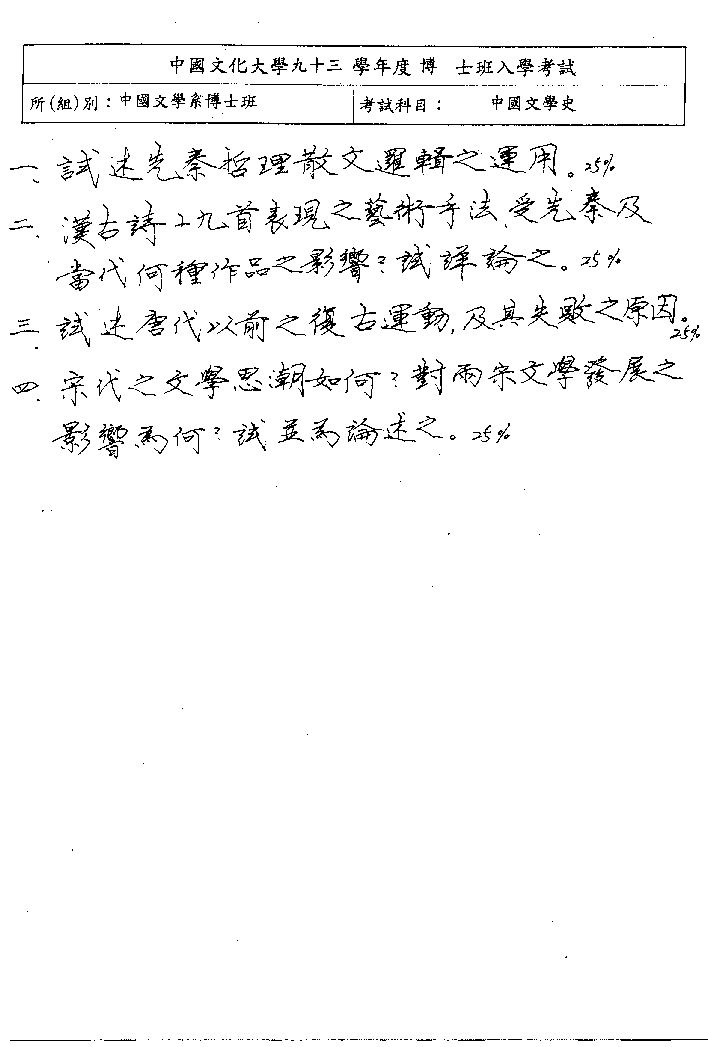 中國文化大學九十三 學年度 博 士班入學考試
所(組)別：中國文學系博士班 考試科目： 中國文學史
一、試述先秦哲理散文邏輯之運用。25%
二、漢古詩十九首表現之藝術手法，受先秦及
當代何種作品之影響？試詳論之。25%
三、試述唐代以前之復古運動，及其失敗之原因。25%
四、宋代之文學思潮如何？對兩宋文學發展之
影響為何？試並為論述之。25%